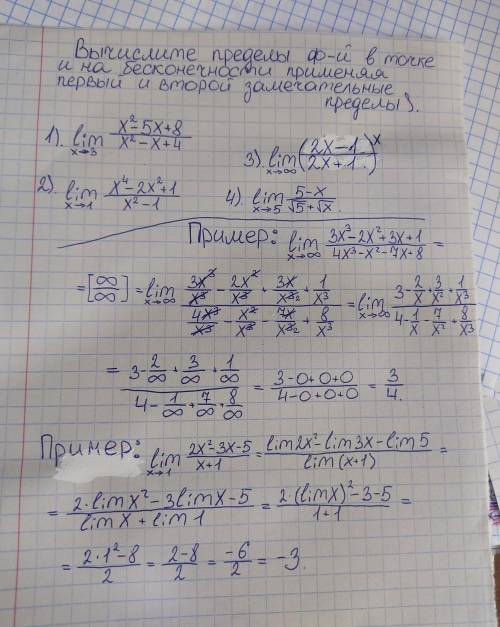 Вычислите пределы ф-й в точке
и на бесконечности применяя
первый и второй замечательные
пределы).
1). lim x→3 (x²-5x+8)/(x²-x+4)
2). lim x→1 (x⁴-2x²+1)/(x²-1)
3). lim x→∞ ((2x-1)/(2x+1))^x
4). lim x→5 (5-x)/(√5+√x).
Пример: lim x→∞ (3x³-2x²+3x+1)/(4x³-x²-7x+8) =
= [∞/∞] = lim x→∞ (3x³/x³ - 2x²/x³ + 3x/x³ + 1/x³)/(4x³/x³ - x²/x³ - 7x/x³ + 8/x³) = lim x→∞ (3 - 2/x + 3/x² + 1/x³)/(4 - 1/x - 7/x² + 8/x³)
= (3 - 2/∞ + 3/∞ + 1/∞)/(4 - 1/∞ + 7/∞ + 8/∞) = (3-0+0+0)/(4-0+0+0) = 3/4.
Пример: lim x→1 (2x²-3x-5)/(x+1) = (lim 2x² - lim 3x - lim 5)/(lim (x+1)) =
= (2·lim x² - 3 lim x - 5)/(lim x + lim 1) = (2·(lim x)² - 3 - 5)/(1+1) =
= (2·1²-8)/2 = (2-8)/2 = -6/2 = -3.